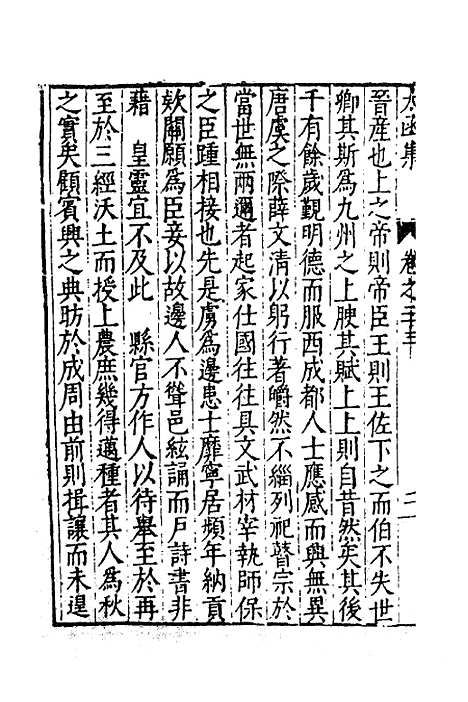 太函集 卷之二十三 二
晉産也上之帝則帝臣王則王佐下之而伯不失世
卿其斯爲九州之上腴其賦上上則自昔然矣其後
千有餘歲覲明德而服西成都人士應感而興無異
唐虞之際薛文清以躬行著皭然不緇列祀瞽宗於
當世無兩邇者起家仕國往往具文武材宰執師保
之臣踵相接也先是虜爲邊患士靡寧居頻年納貢
欵關願爲臣妾以故邊人不聳邑絃誦而戶詩書非
藉 皇靈宜不及此 縣官方作人以待舉至於再
至於三經沃土而授上農庶幾得邁種者其人爲秋
之實矣顧賓興之典昉於成周由前則揖讓而未遑